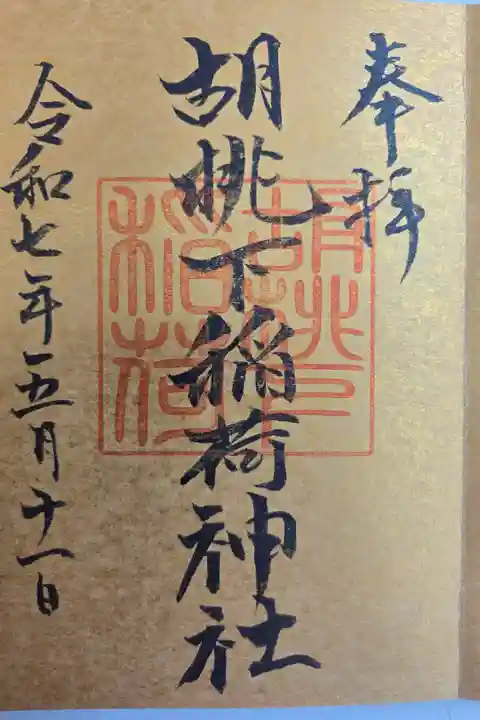 奉拝
胡桃下稲荷神社
胡桃下
稲荷
令和七年五月十一日